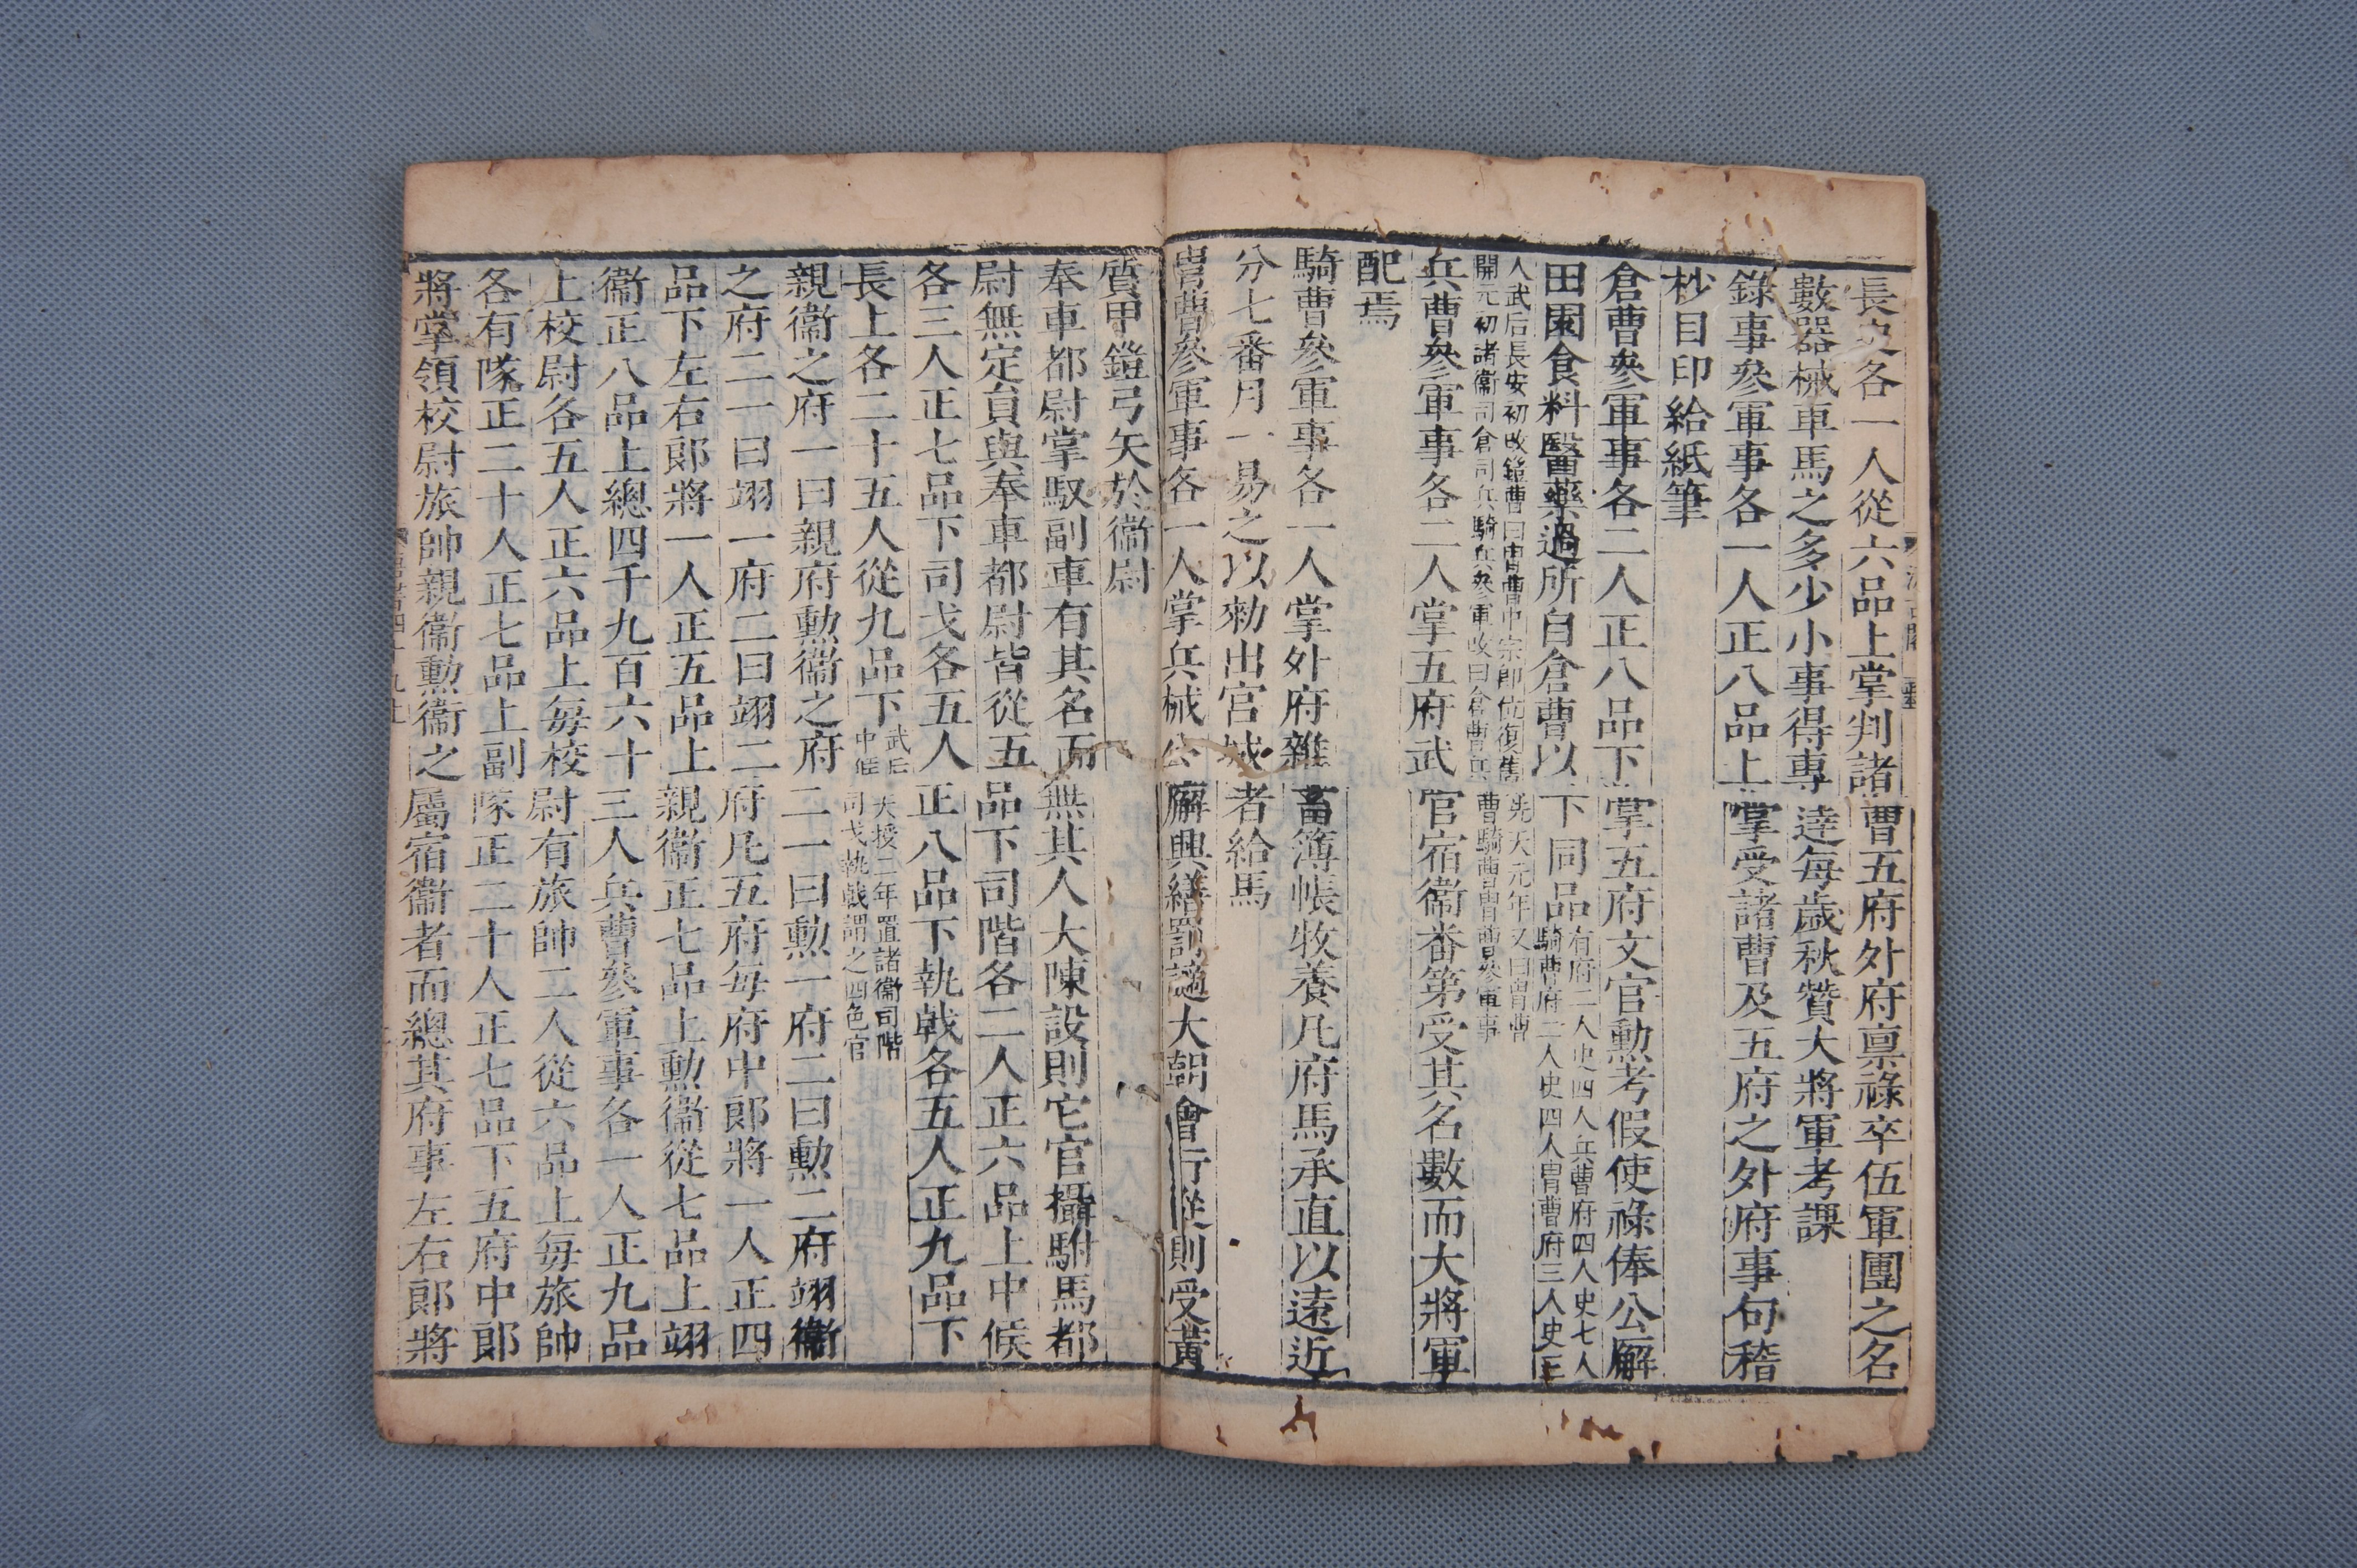 長史各一人從六品上掌判諸曹五府外府禀祿卒伍軍團之名
數器械車馬之多少小事得專達每歳秋贊大將軍考課
錄事叅軍事各一人正八品上掌受諸曹及五府之外府事句稽
杪目印給紙筆
倉曹叅軍事各二人正八品下掌五府文官勳考假使祿俸公廨
田園食料醫藥過所自倉曹以下同品有府二人史四人兵曹府四人史七人
騎曹府二人史四人冑曹府三人史三
人武后長安初改鎧曹曰冑曹中宗即位復舊先天元年又曰冑曹
開元初諸衞司倉司兵騎兵叅軍改曰倉曹兵曹騎曹冑曹叅軍事
兵曹叅軍事各二人掌五府武官宿衞番第受其名數而大將軍
配焉
騎曹叅軍事各一人掌外府雜畜簿帳牧養凡府馬承直以遠近
分七番月一易之以勑出宮城者給馬
冑曹叅軍事各一人掌兵械公廨興繕罰讁大朝會行從則受黃
質甲鎧弓矢於衞尉
奉車都尉掌馭副車有其名而無其人大陳設則它官攝駙馬都
尉無定員與奉車都尉皆從五品下司階各二人正六品上中候
各三人正七品下司戈各五人正八品下執戟各五人正九品下
長上各二十五人從九品下武后天授二年置諸衞司階
中候司戈執戟謂之四色官
親衞之府一曰親府勳衞之府二一曰勳一府二曰勳二府翊衞
之府二一曰翊一府二曰翊二府凡五府每府中郞將一人正四
品下左右郞將一人正五品上親衞正七品上勳衞從七品上翊
衞正八品上總四千九百六十三人兵曹叅軍事各一人正九品
上校尉各五人正六品上每校尉有旅帥二人從六品上每旅帥
各有隊正二十人正七品上副隊正二十人正七品下五府中郞
將掌領校尉旅帥親衞勳衞之屬宿衞者而總其府事左右郞將